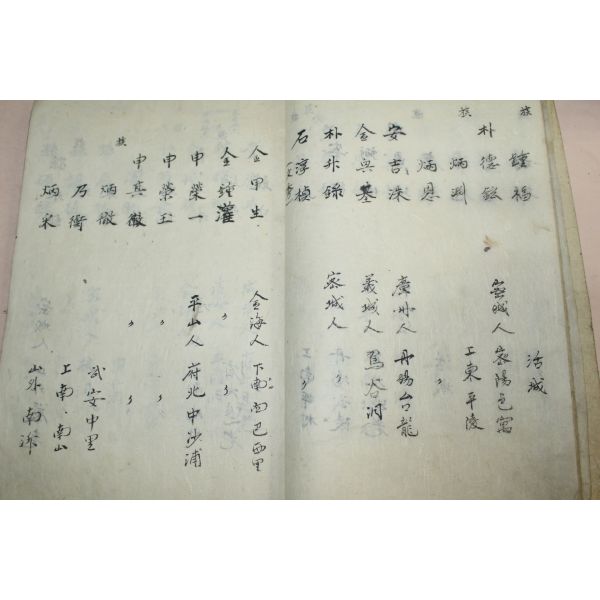 族 鍾福 活城
朴德鉉 密城人 密陽邑寓
族 炳 工東平陵
炳恩 〃
安吉洙 廣州人 丹陽台龍
金與基 義城人 谷洞
朴升錄 密城人 〃
石淳楨
金甲生 金海人 下南面巴西里
金鍾灌 〃 〃
申榮一 平山人 府北中沙浦
申榮玉 〃 〃
申真徹 〃 〃
族 炳徹 武安中里
乃衡 上南南山
炳采 山外南沂